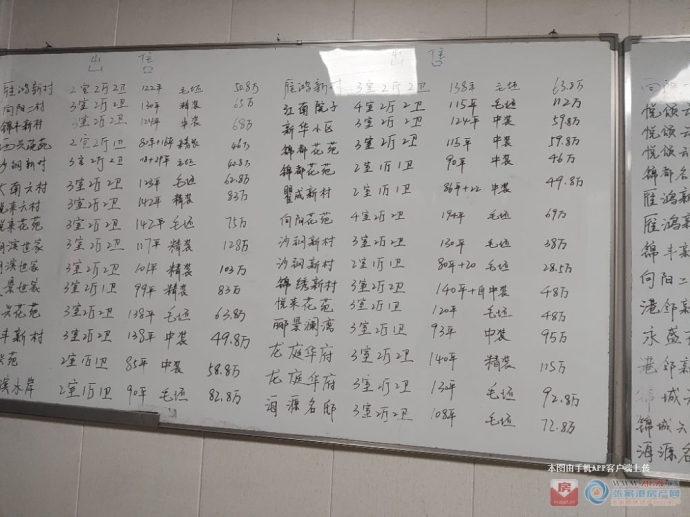 出售
雁鸿新村 2室2厅2卫 122平 毛坯 50.8万
向阳二村 3室2厅2卫 130平 精装 65万
锦丰新村 3室2厅2卫 124平 中装 68万
花苑 2室2厅2卫 精装 46万
沙钢新村 3室2厅2卫 毛坯 62.8万
南六村 3室2厅2卫 125平 毛坯 62.8万
悦来六村 3室2厅2卫 142平 精装 83万
悦来花苑 3室2厅2卫 142平 毛坯 75万
世家 3室2厅2卫 117平 精装 128万
世家 3室2厅2卫 101平 精装 103万
世家 3室2厅1卫 99平 精装 83万
花苑 3室2厅2卫 138平 毛坯 63.8万
丰新村 3室2厅2卫 138平 中装 49.8万
苑 2室1厅1卫 85平 中装 58.8万
水岸 2室1厅1卫 90平 毛坯 82.8万
出售
雁鸿新村 3室2厅2卫 138平 毛坯 63.8万
江南院子 4室2厅2卫 115平 毛坯 112万
新华小区 3室2厅2卫 124平 中装 59.8万
锦都花苑 3室2厅2卫 115平 中装 59.8万
锦都花苑 2室1厅1卫 90平 中装 46万
翟成新村 2室1厅1卫 86平+22 中装 49.8万
向阳花苑 4室2厅2卫 194平 毛坯 69万
沙钢新村 3室2厅2卫 130平 毛坯 38万
沙钢新村 2室1厅1卫 80平+20 毛坯 28.5万
锦绣新村 3室2厅1卫 140平 中装 48万
悦来花苑 3室2厅1卫 120平 毛坯 48万
郦景澜湾 3室2厅1卫 93平 中装 95万
龙庭华府 3室2厅2卫 140平 精装 115万
龙庭华府 3室2厅2卫 132平 毛坯 92.8万
海源名邸 3室2厅2卫 108平 毛坯 72.8万
向阳
悦领云
悦领云
锦都名
雁鸿新
雁鸿新
锦丰新
向阳二
港邻新
永盛
港邻新
城六
锦城六
海源名
本图由手机APP客户端上传
房
张家港房产网